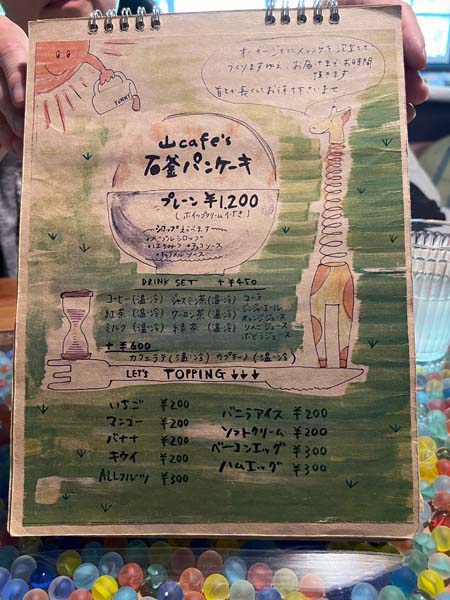 オーダーごとにメレンゲを泡立てて
つくりますゆえ、お届けまでお時間
頂きます
首を長くしてお待ち下さいませ
YUMMY
山cafe's
石釜パンケーキ
プレーン ¥1,200
(ホイップクリーム付き)
シロップえらべます
・メープルシロップ
・はちみつ ・チョコソース
・キャラメルソース
DRINK SET +¥450
コーヒー(温・冷) ジャスミン茶(温・冷) コーラ
紅茶(温・冷) ウーロン茶(温・冷) ジンジャーエール
オレンジジュース
ミルク(温・冷) 緑茶(温・冷) りんごジュース
ぶどうジュース
+¥600
カフェラテ(温・冷) カプチーノ(温・冷)
LET'S TOPPING ↓↓↓
いちご ¥200 バニラアイス ¥200
マンゴー ¥200 ソフトクリーム ¥200
バナナ ¥200 ベーコンエッグ ¥300
キウイ ¥200 ハムエッグ ¥300
ALLフルーツ ¥300